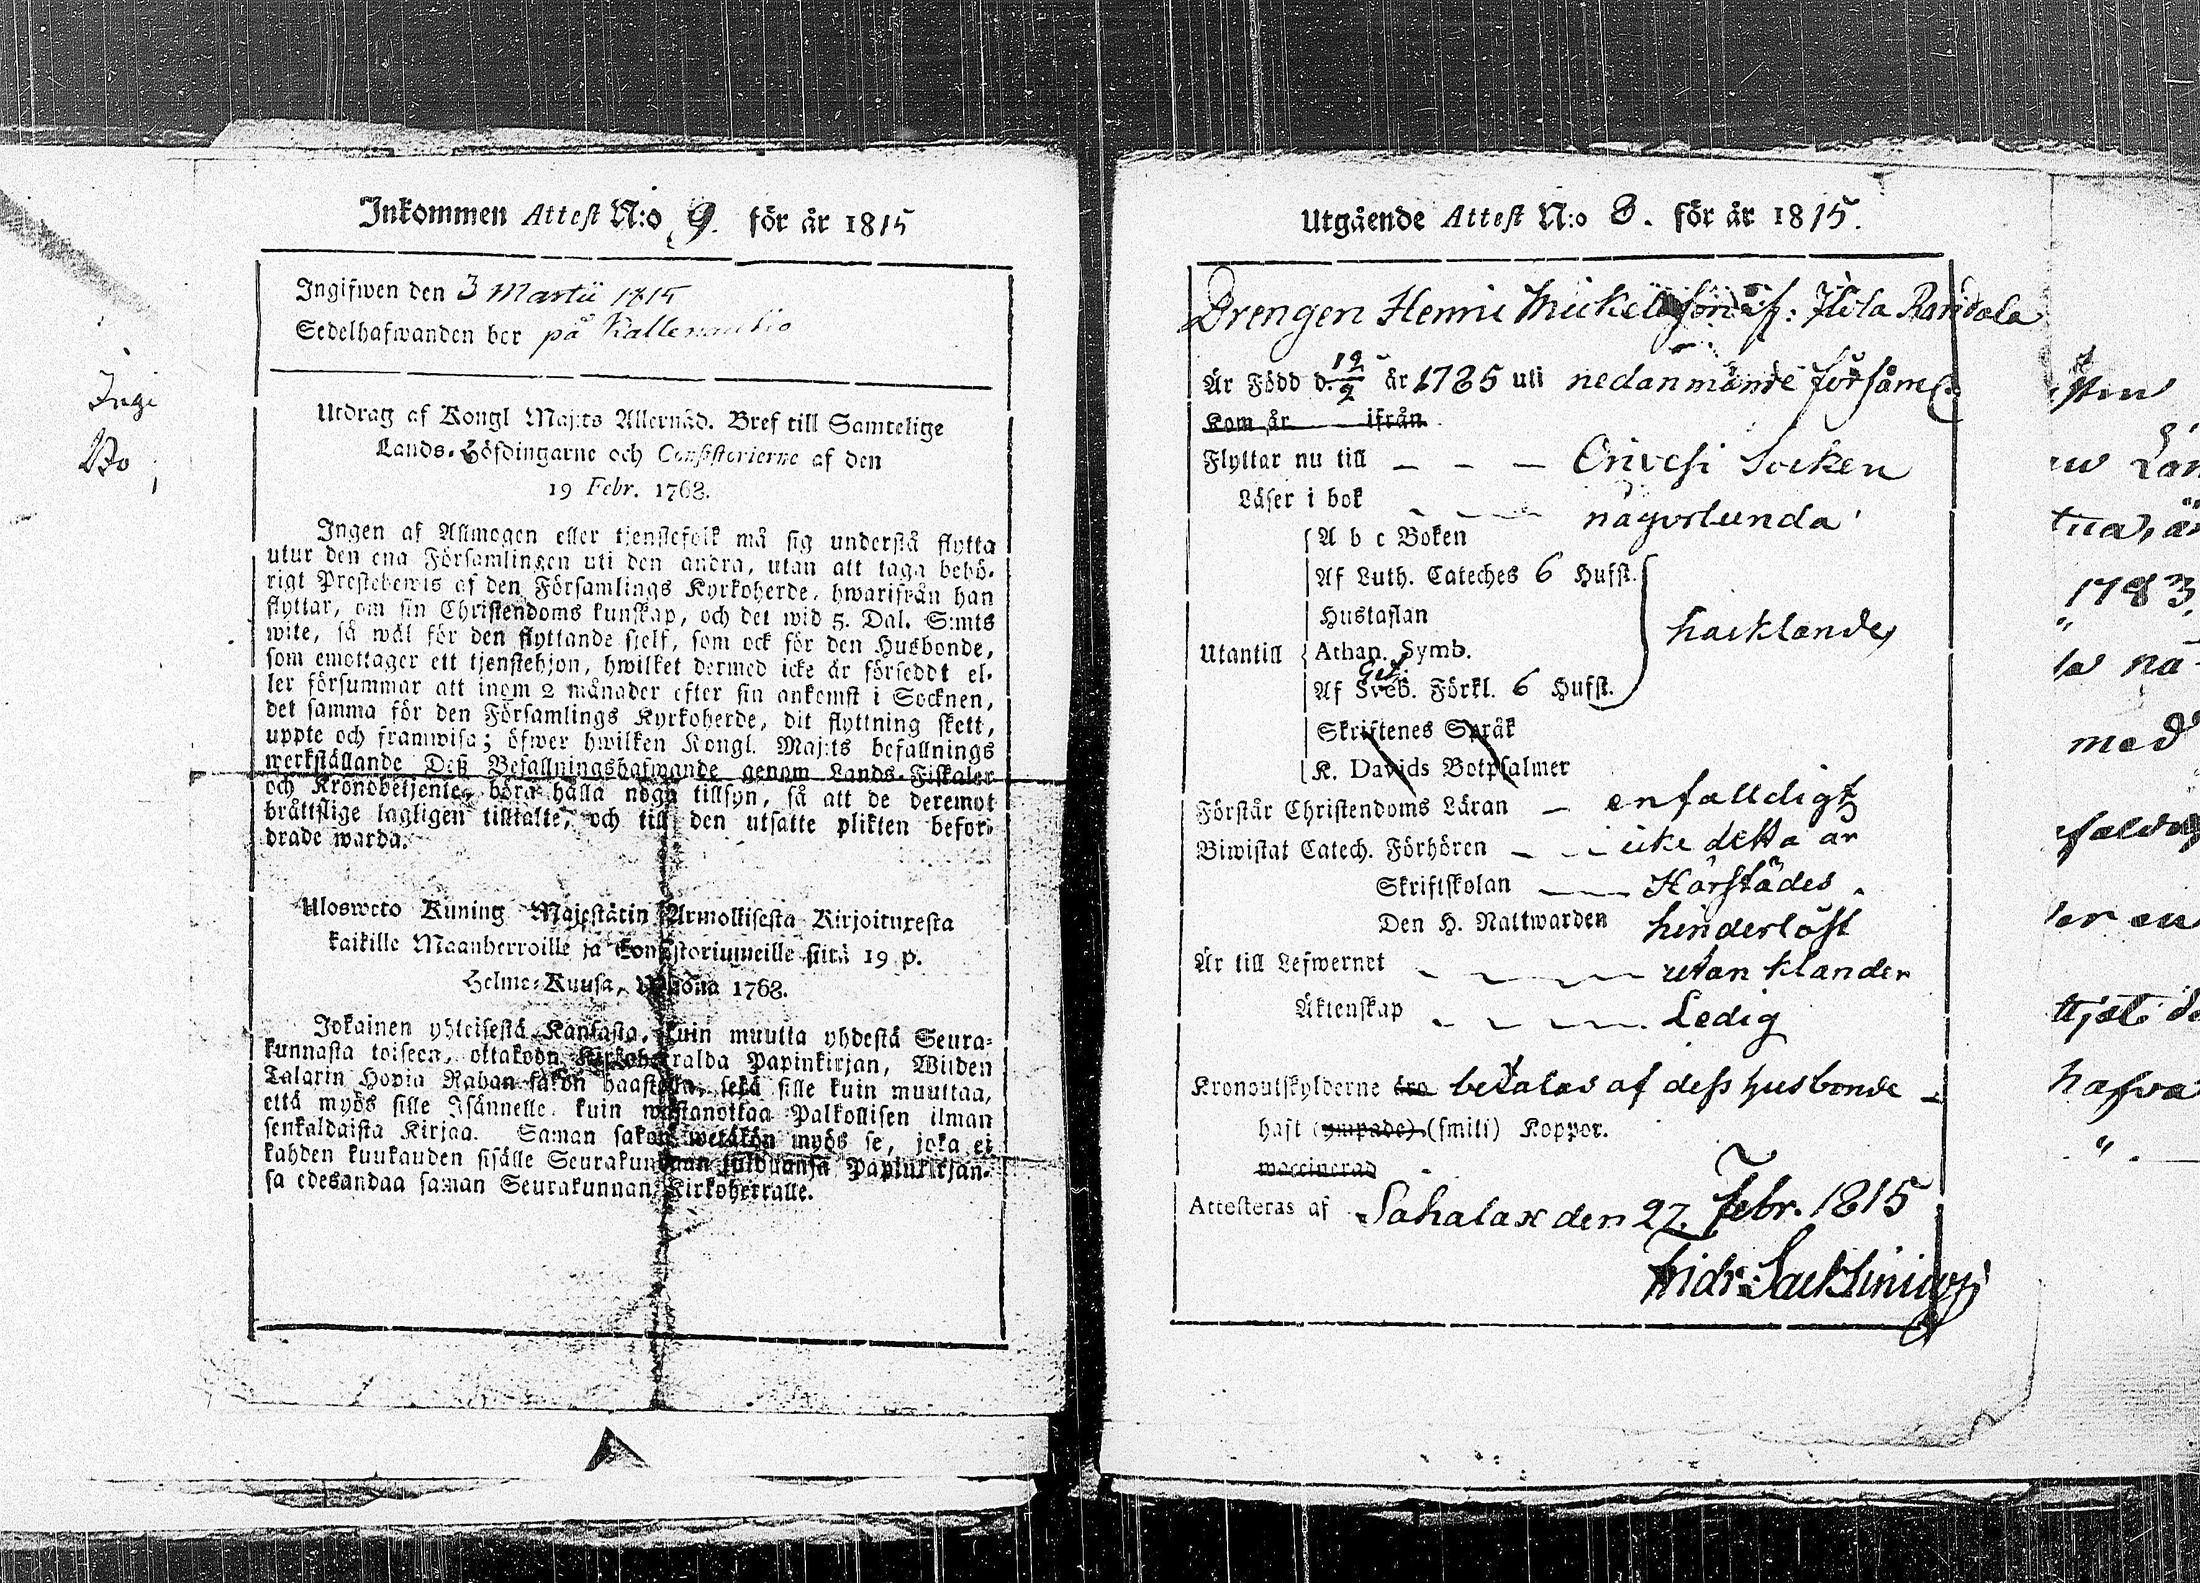 Inkommen Attest N:o 9. för år 1815
Ingifwen den 3 Martii 1815
Sedelhafwanden bor på
Utdrag af Kongl Maj:ts Allernåd. Bref till Samtelige
Lands-Höfdingarne och Consistorierne af den
19 Febr. 1768.
Ingen af Allmogen eller tjenstefolk må sig understå flytta
utur den ena Församlingen uti den andra, utan att taga behö-
rigt Prestebewis af den Församlings Kyrkoherde, hwarifrån han
flyttar, om sin Christendoms kunskap, och det wid 5. Dal. S:mts
wite, så wäl för den flyttande sjelf, som ock för den Husbonde,
som emottager ett tjenstehjon, hwilket dermed icke är försedt el-
ler försummar att inom 2 månader efter sin ankomst i Socknen,
det samma för den Församlings Kyrkoherde, dit flyttning skett,
uppte och framwisa; öfwer hwilken Kongl. Maj:ts befallnings
werkställande Deß Befallningshafwande genom Lands-Fiskaler
och Kronobetjente, böra hålla noga tillsyn, så att de deremot
bråttslige lagligen tilltalte, och till den utsatte plikten befor-
drade warda.
Ulosweto Kuning Majestätin Armollisesta Kirjoituxesta
kaikille Maanherroille ja Consistoriumeille siitä 19 p.
Helme-Kuusa, Wuonna 1768.
Jokainen yhteisestä Kansasta, kuin muutta yhdestä Seura-
kunnasta toiseen, ottakoon Kirkoherralda Papinkirjan, Wiiden
Talarin Hopia Rahan sakon haastolla, sekä sille kuin muuttaa,
että myös sille Isännelle, kuin wastanottaa Palkollisen ilman
senkaldaista Kirjaa. Saman sakon wetäkön myös se, joka ei
kahden kuukauden sisälle Seurakundaan tulduansa Papinkirjan-
sa edesandaa saman Seurakunnan Kirkoherralle.
Utgående Attest N:o 8. för år 1815.
Drengen Henric Mickelsson
Är Född d. 12/2 år 1785 uti nedanmände församl.
Kom år ifrån
Flyttar nu till Orivesi Socken
Läser i bok någorlunda
A b c Boken
Af Luth. Cateches 6 Hufst.
Hustaflan
Utantill Athan. Symb. hacklande
Af Sveb. Förkl. 6 Hufst.
Skriftenes Språk
K. Davids Botpsalmer
Förstår Christendoms Läran enfalldigt
Biwistat Catech. Förhören icke detta år
Skriftskolan Härstädes
Den H. Nattwarden hinderlöst
Är till Lefwernet utan klander
Äktenskap Ledig
Kronoutskylderne äro betalas af dess husbonde
haft (ympade) (smitt) Koppor.
waccinerad
Attesteras af Sahalax den 27. Febr. 1815
Ingi
Bo
1783
med
hafva